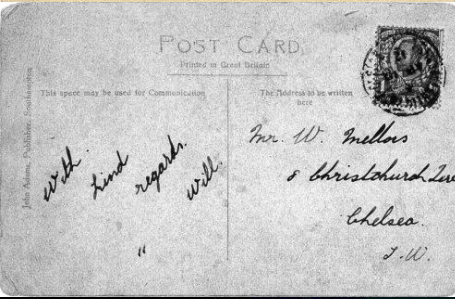 POST CARD.
Printed in Great Britain
This space may be used for Communication
The Address to be written
here
John Adams, Publisher, Southampton
With
kind
regards.
Will.
"
Mr. W. Mellors
8 Christchurch
Chelsea.
S.W.